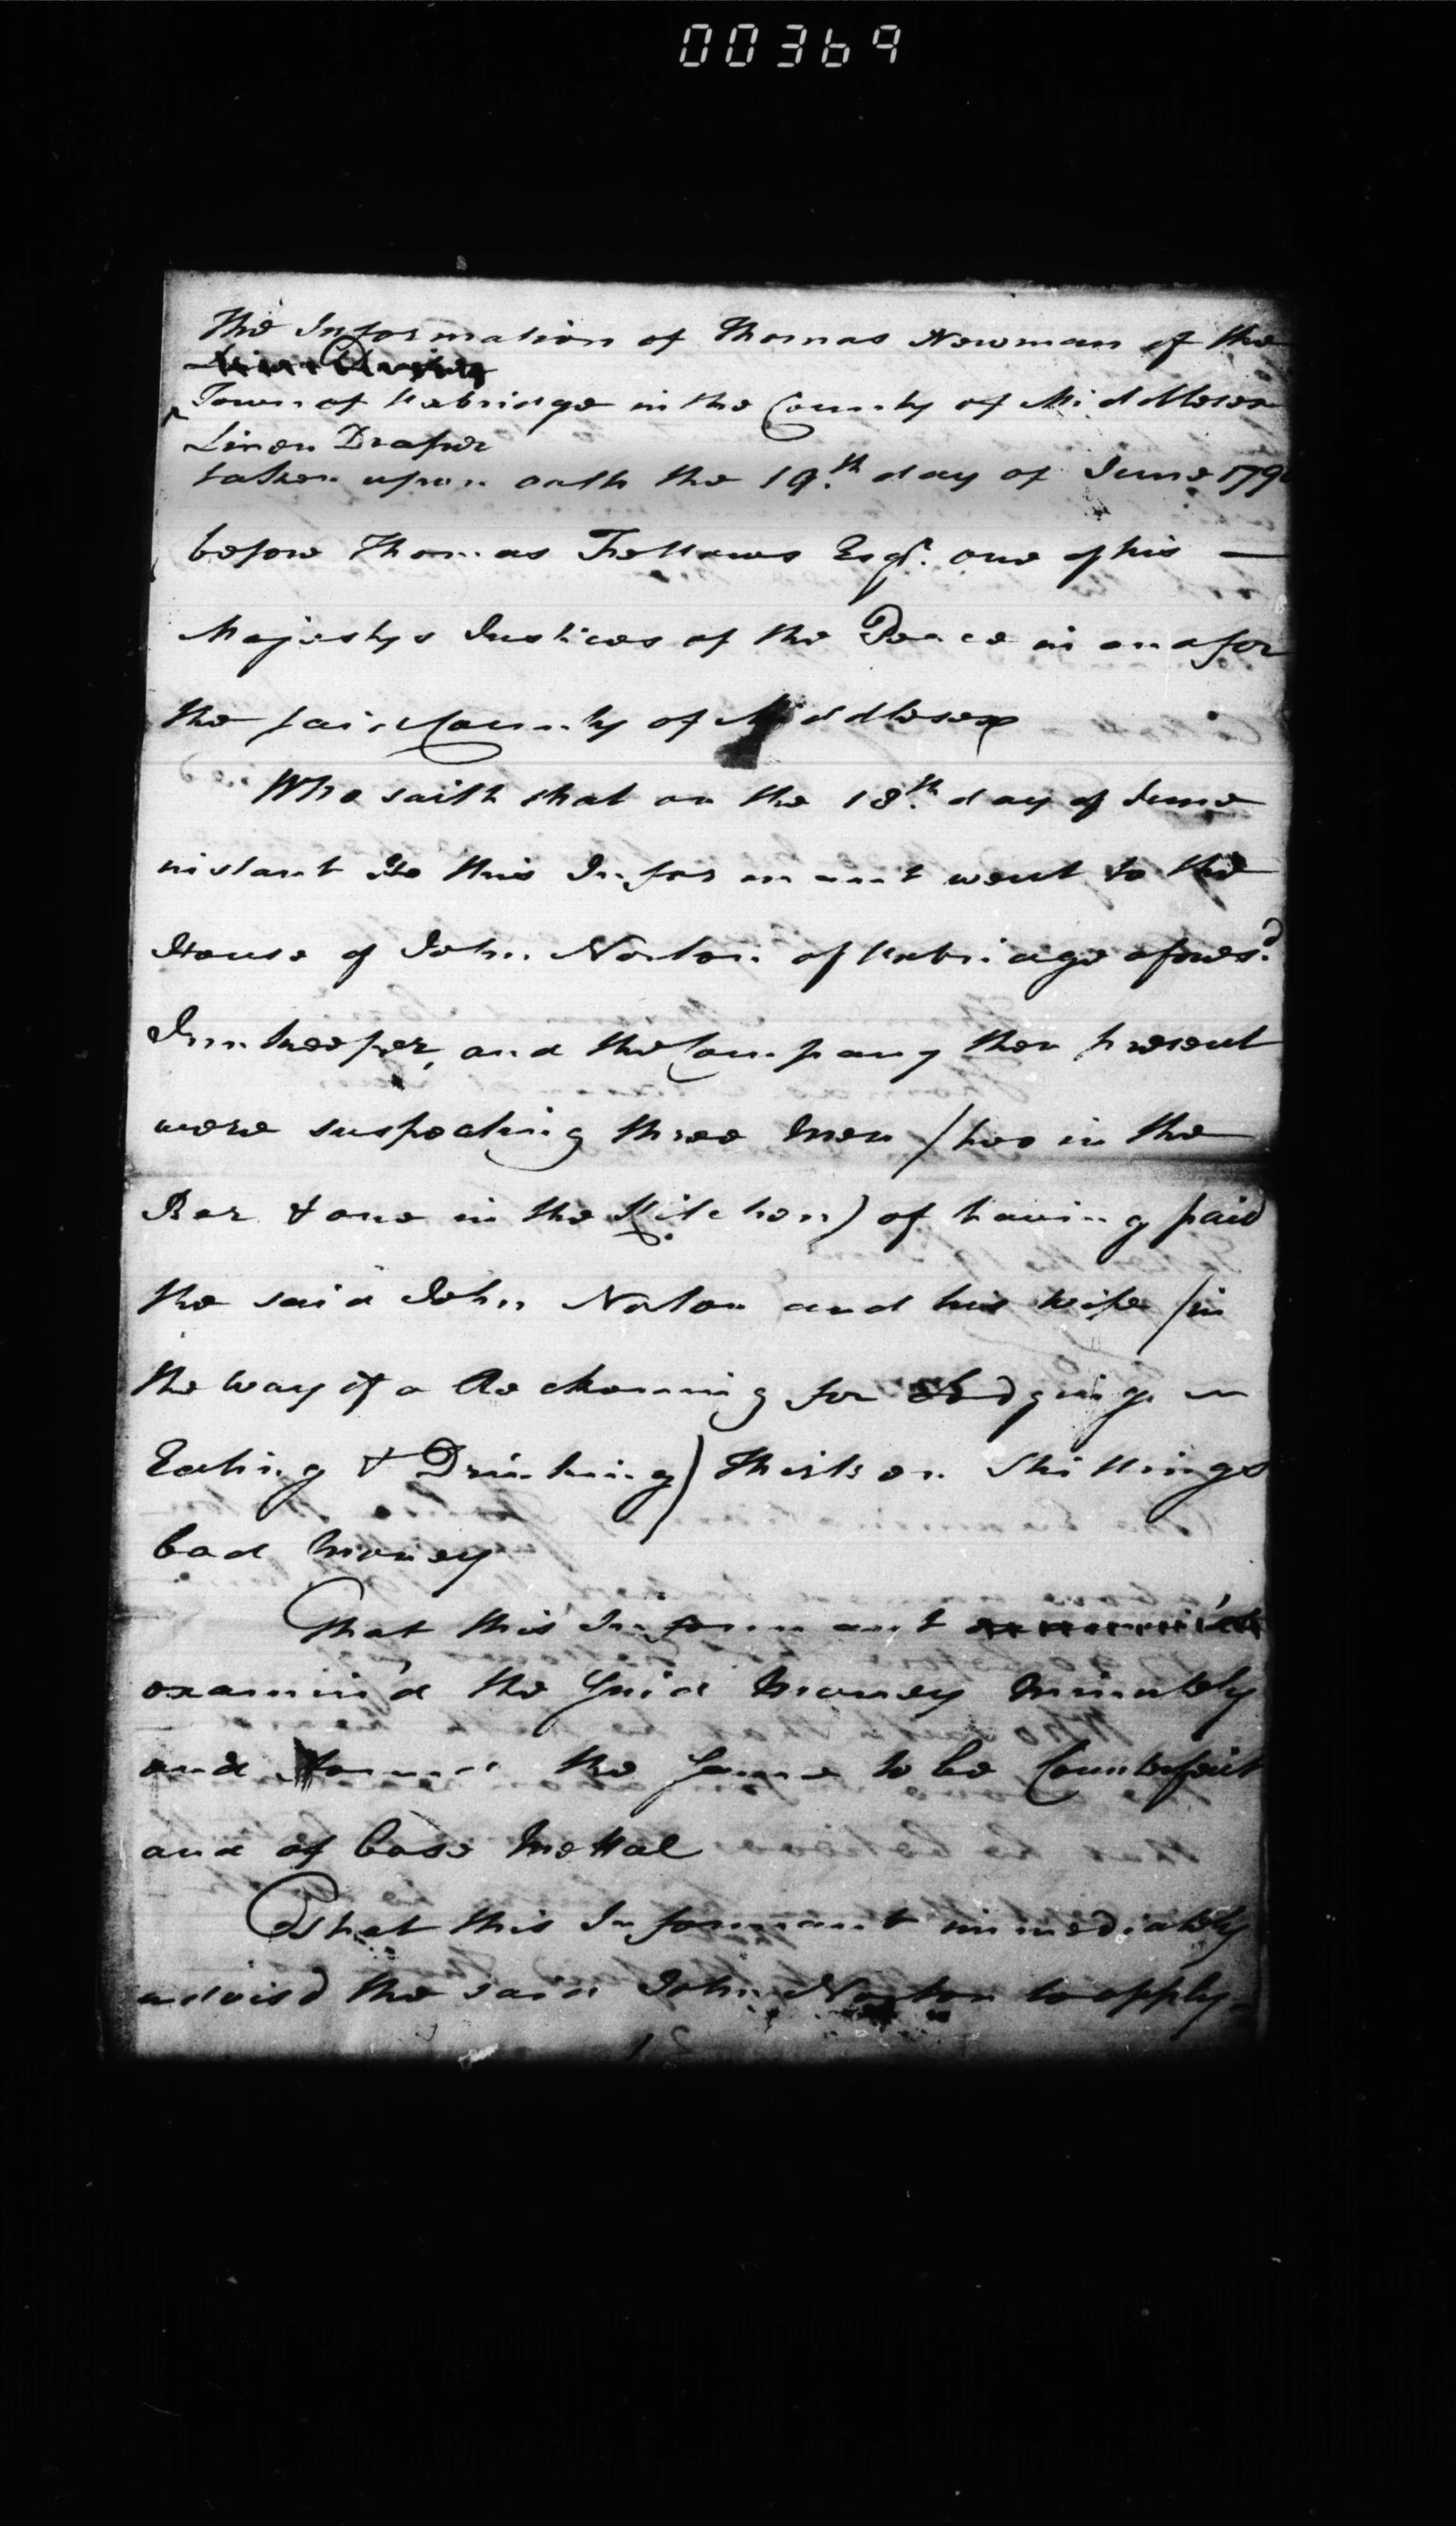 00369
The Information of Thomas Newman of the
Town of Uxbridge in the County of Middlesex
Linen Draper
taken upon oath the 19th day of June 1790
before Thomas Fellows Esqr. one of his —
Majestys Justices of the Peace in and for
the said County of Middlesex
Who saith that on the 18th. day of June
instant He this Informant went to the
House of John Norton of Uxbridge afores.d
Innkeeper, and the Company then present
were suspecting three Men (two in the
Bar & one in the Kitchen) of having paid
the said John Norton and his wife (in
the way of a Reckonning for Lodging
Eating & Drinking) thirteen Shillings
bad Money
That this Informant
examin'd the said Money Minutely
and found the same to be Counterfeit
and of base Mettal
That this Informant immediately
advis'd the said John Norton to apply